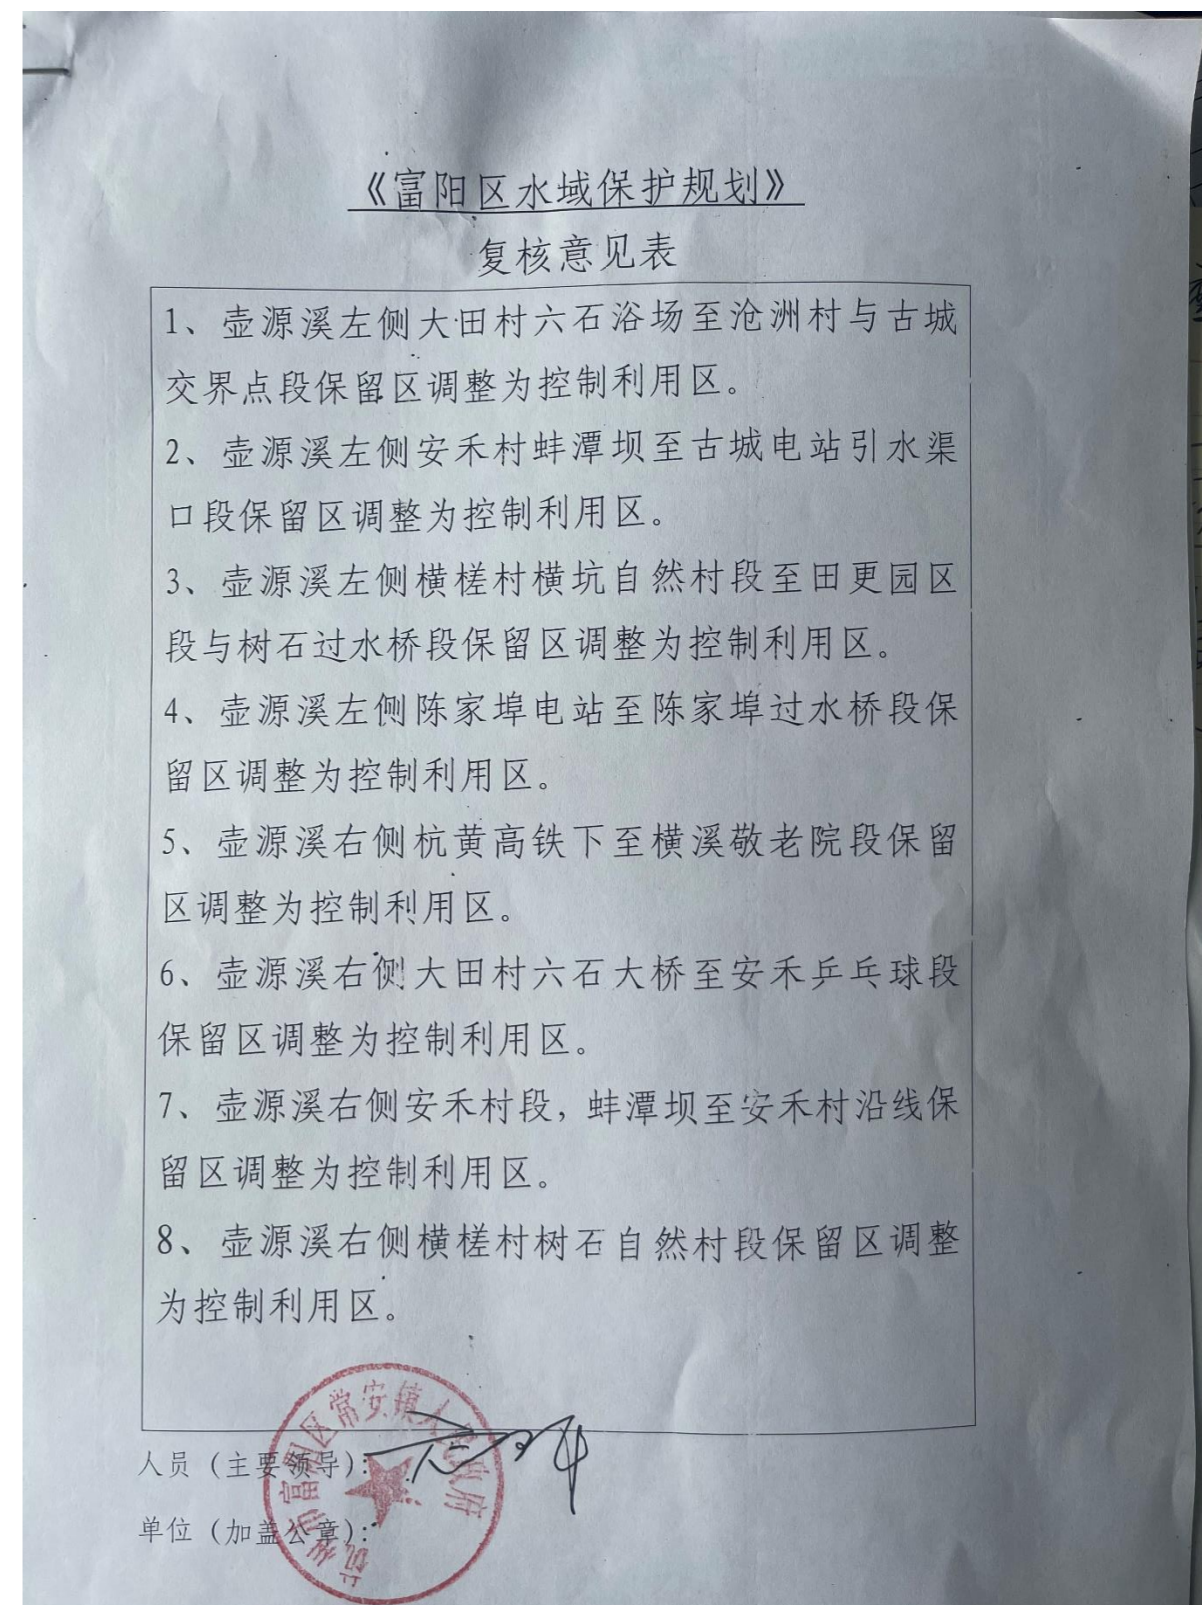 《富阳区水域保护规划》
复核意见表
1、壶源溪左侧大田村六石浴场至沧洲村与古城
交界点段保留区调整为控制利用区。
2、壶源溪左侧安禾村蚌潭坝至古城电站引水渠
口段保留区调整为控制利用区。
3、壶源溪左侧横槎村横坑自然村段至田更园区
段与树石过水桥段保留区调整为控制利用区。
4、壶源溪左侧陈家埠电站至陈家埠过水桥段保
留区调整为控制利用区。
5、壶源溪右侧杭黄高铁下至横溪敬老院段保留
区调整为控制利用区。
6、壶源溪右侧大田村六石大桥至安禾乒乓球段
保留区调整为控制利用区。
7、壶源溪右侧安禾村段，蚌潭坝至安禾村沿线保
留区调整为控制利用区。
8、壶源溪右侧横槎村树石自然村段保留区调整
为控制利用区。
人员（主要领导）：
单位（加盖公章）：
杭州市富阳区常安镇人民政府